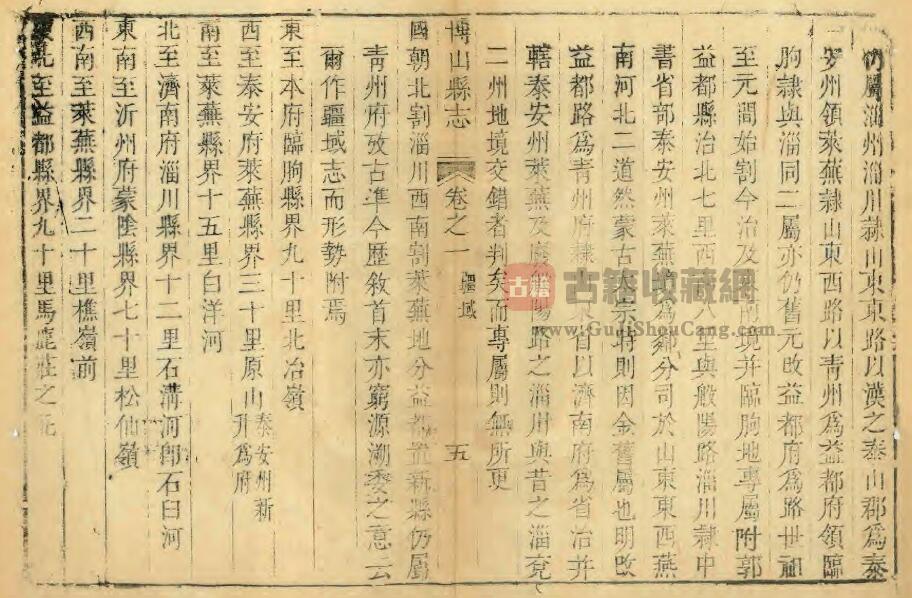 仍屬淄州淄川隸山東東路以漢之泰山郡爲泰
安州領萊蕪隸山東西路以青州爲益都府領臨
朐隸與淄同二屬亦仍舊元改益都府爲路世祖
至元間始割今治及南境并臨朐地專屬附郭
益都縣治北七里西八里與般陽路淄川隸中
書省部泰安州萊蕪爲鄰分司於山東東西燕
南河北二道然蒙古太宗時則因金舊屬也明改
益都路爲青州府隸省以濟南府爲省治并
轄泰安州萊蕪及廢般陽路之淄川與昔之淄兗
二州地境交錯者判矣而專屬則無所更
博山縣志 卷之一 疆域 五
國朝北割淄川西南割萊蕪地分益都置新縣仍屬
青州府攷古準今歷敘首末亦窮源溯委之意云
爾作疆域志而形勢附焉
東至本府臨朐縣界九十里北冶嶺
西至泰安府萊蕪縣界三十里原山泰安州新升爲府
南至萊蕪縣界十五里白洋河
北至濟南府淄川縣界十二里石溝河即石臼河
東南至沂州府蒙陰縣界七十里松仙嶺
西南至萊蕪縣界二十里樵嶺前
東北至益都縣界九十里馬鹿莊之北
古籍 古籍收藏網
www.GuJiShouCang.com